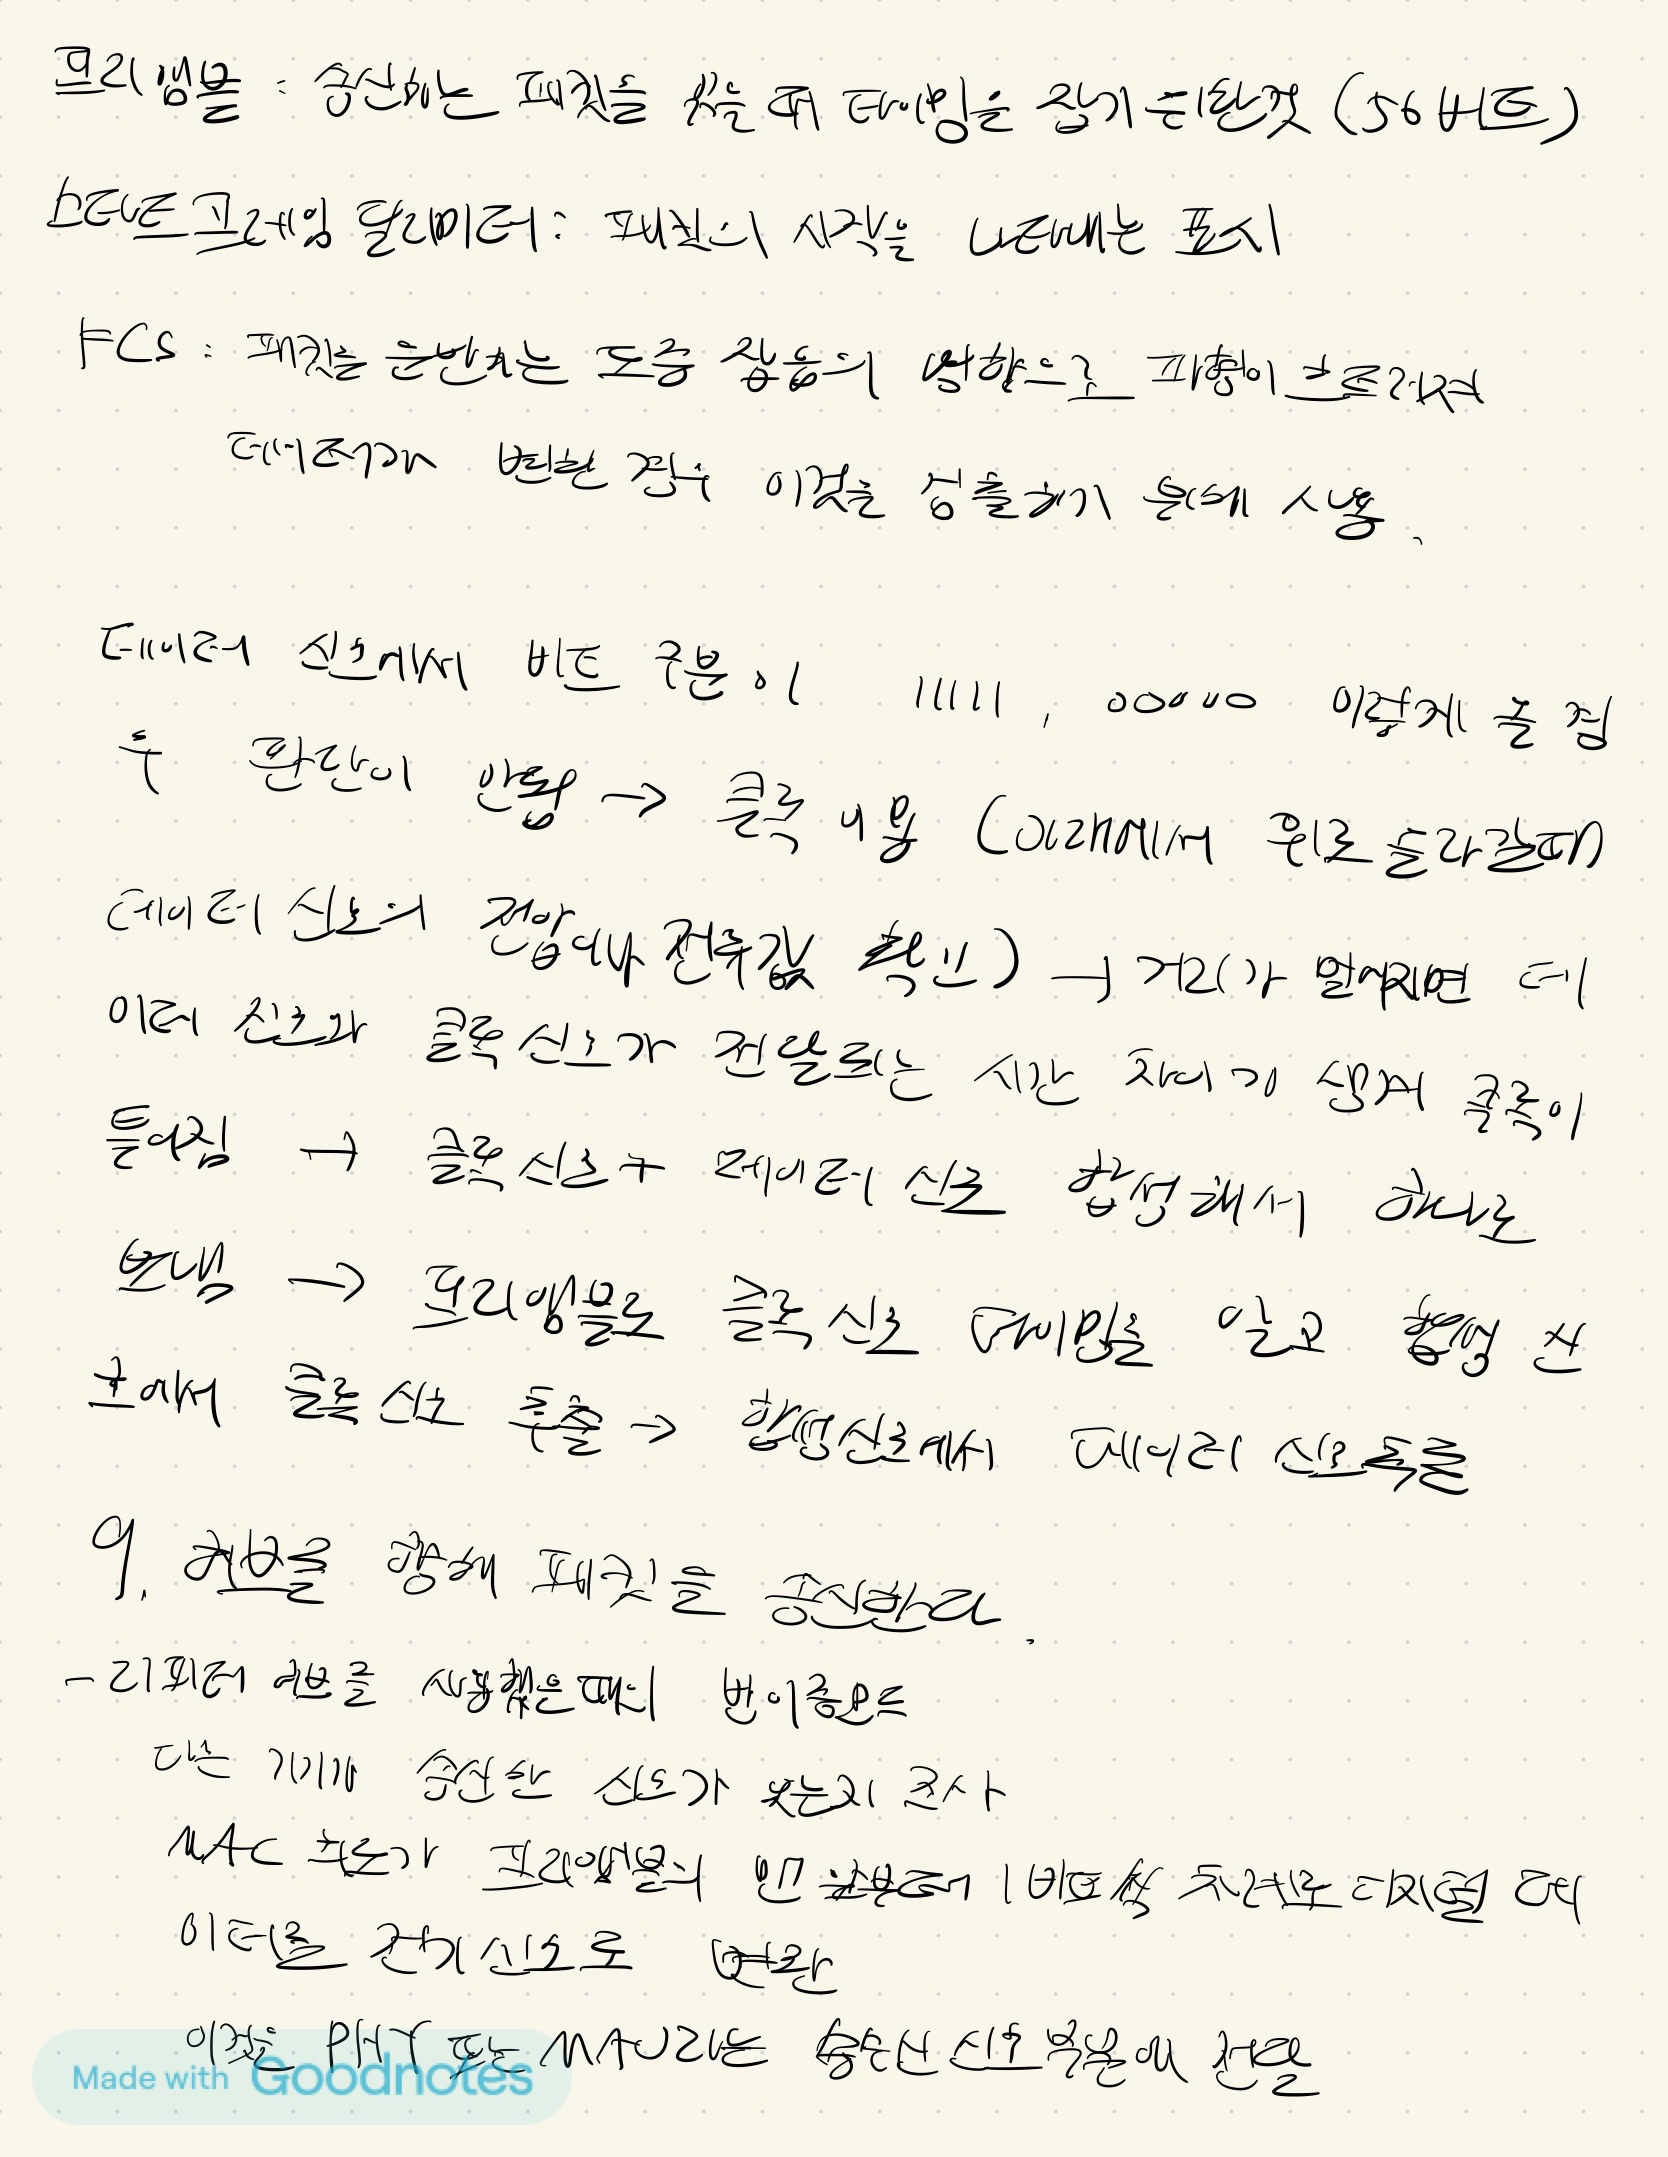 프리앰블 : 송신하는 패킷을 읽을 때 타이밍을 잡기 위한것 (56비트)
스타트 프레임 딜리미터 : 패킷의 시작을 나타내는 표시
FCS : 패킷을 운반하는 도중 잡음의 영향으로 파형이 흐트러져
데이터가 변한 경우 이것을 검출하기 위해 사용.
데이터 신호에서 비트 구분이 11111, 00000 이렇게 올 경
우 판단이 안됨 → 클록 사용 (아래에서 위로 올라갈때
데이터 신호의 전압이나 전류값 확인) → 거리가 멀어지면 데
이터 신호와 클록 신호가 전달되는 시간 차이가 생겨 클록이
틀어짐 → 클록 신호 + 데이터 신호 합성해서 하나로
보냄 → 프리앰블로 클록 신호 타이밍을 알고 합성 신
호에서 클록 신호 추출 → 합성신호에서 데이터 신호 추출
9. 허브를 향해 패킷을 송신한다.
- 리피터 허브를 사용했을때의 반이중모드
다른 기기가 송신한 신호가 있는지 조사
MAC 회로가 프리앰블의 맨 앞부터 1비트씩 차례로 디지털 데
이터를 전기 신호로 변환
이것을 PHY 또는 MAU라는 송수신 신호 부분에 전달
Made with Goodnotes